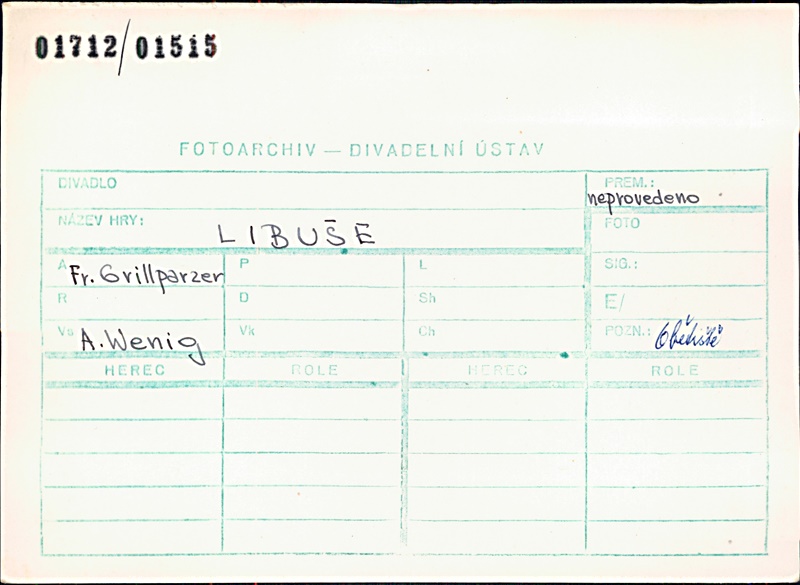 01712/01515
FOTOARCHIV — DIVADELNÍ ÚSTAV
DIVADLO
PREM.:
neprovedeno
NÁZEV HRY:
LIBUŠE
FOTO
A Fr. Grillparzer
P
L
SIG.:
R
D
Sh
E/
Vs A. Wenig
Vk
Ch
POZN.:
HEREC
ROLE
HEREC
ROLE